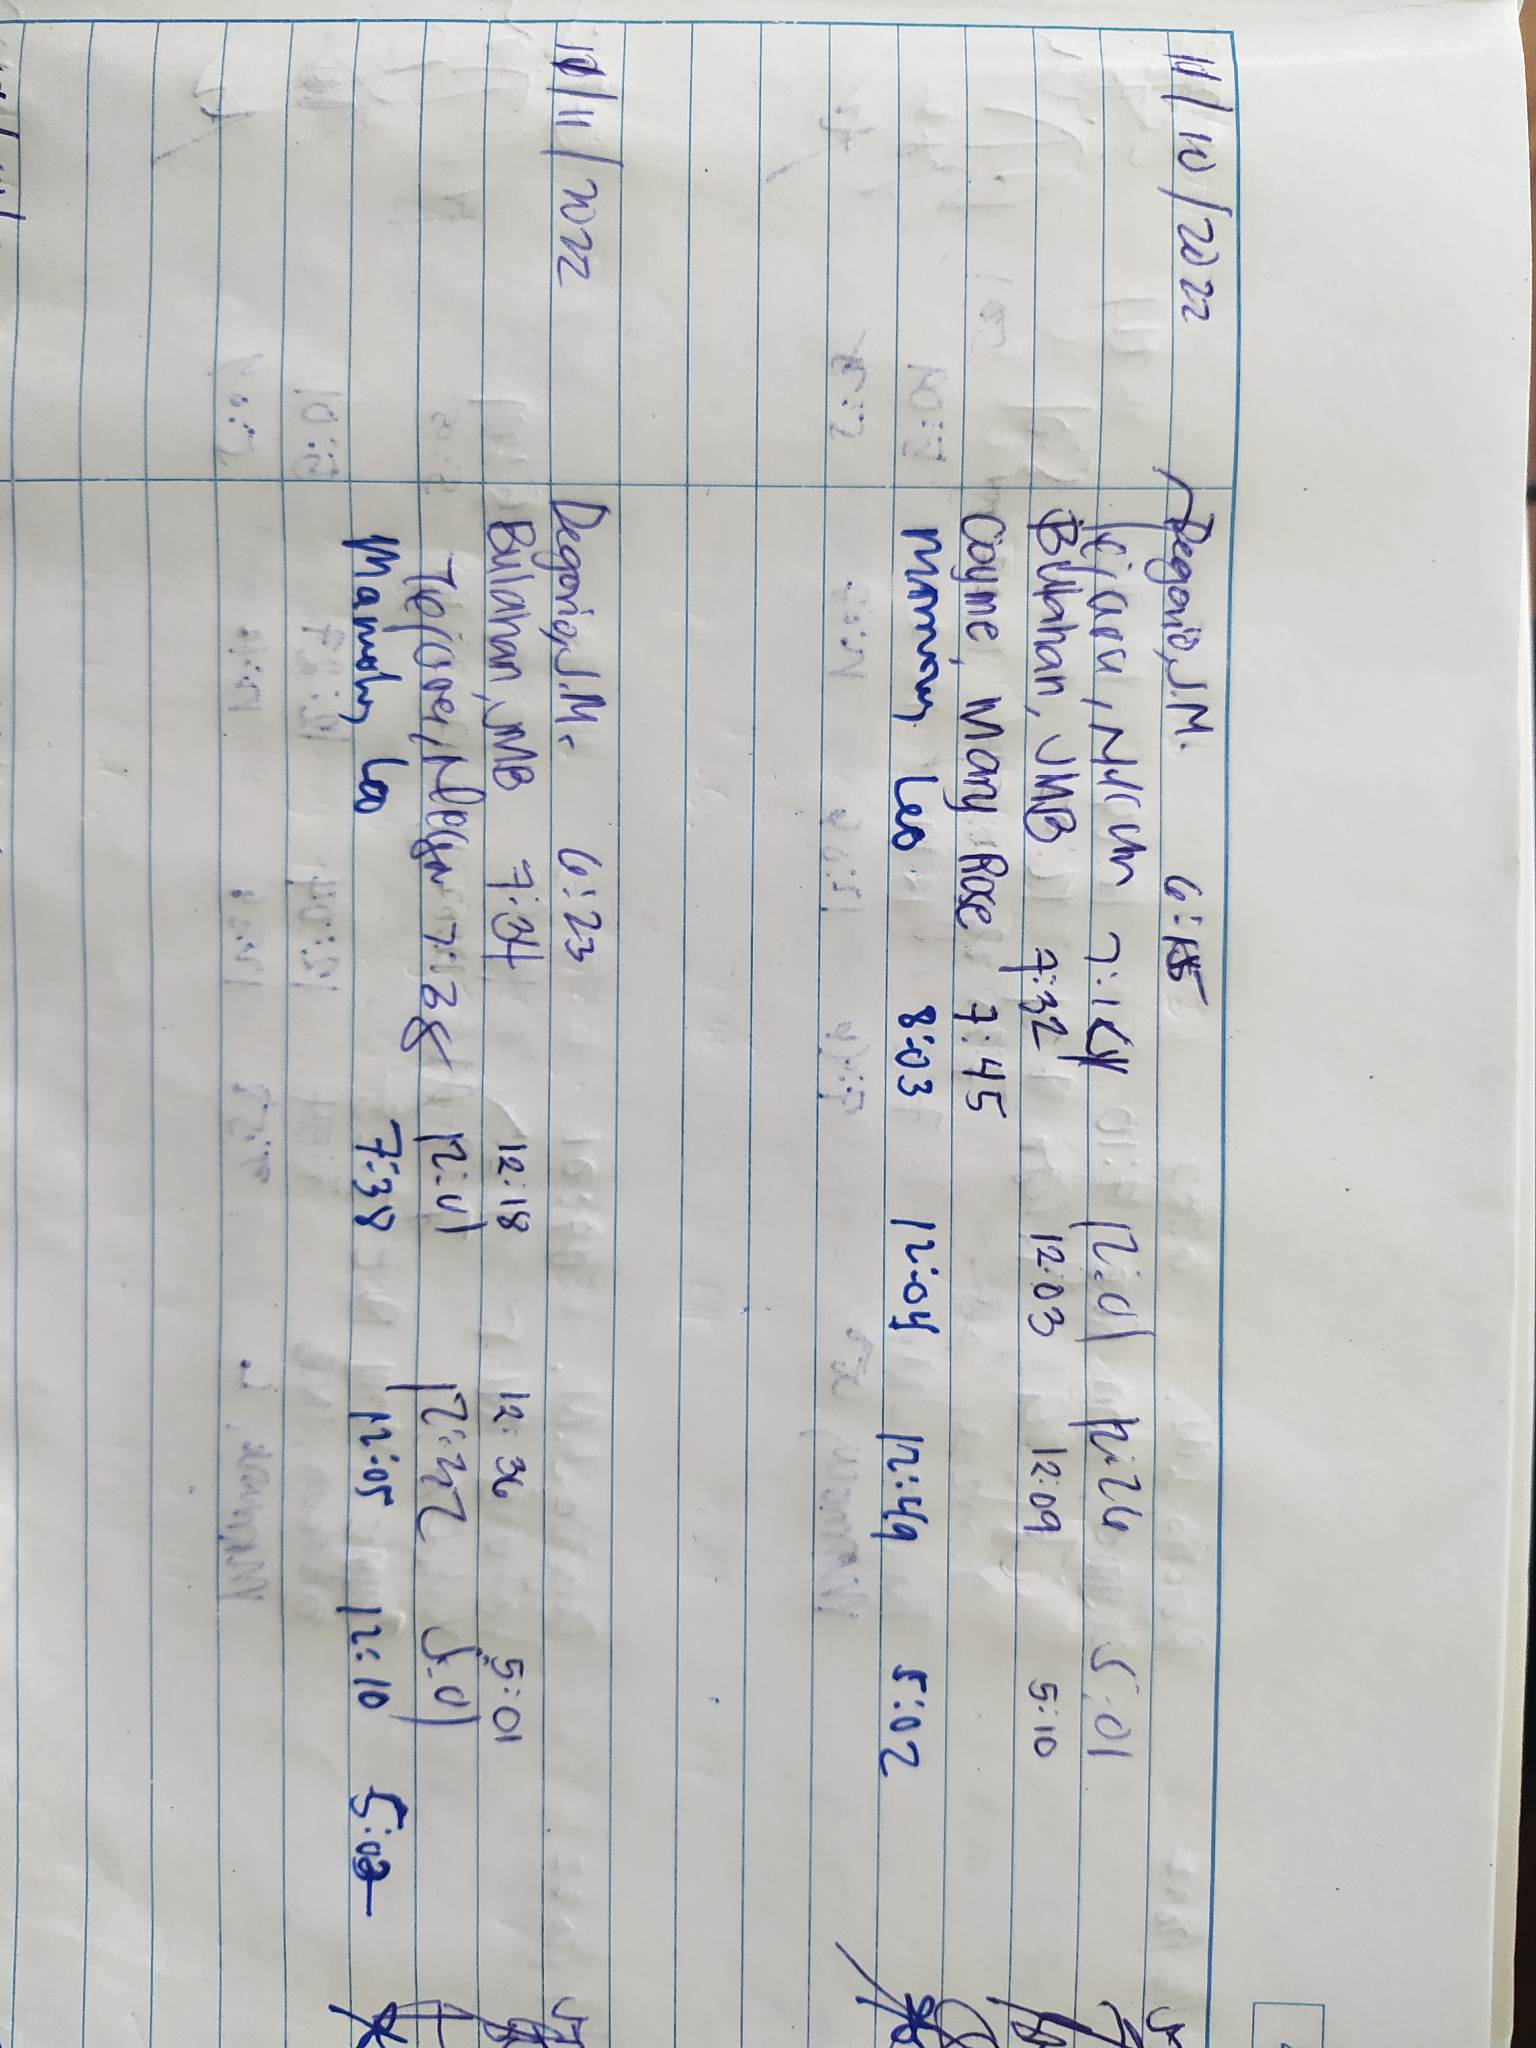 11/10/2022 Degorio, J.M. 6:15
7:14 12:01 12:26 5:01
Bulahan, JMB 7:32 12:03 12:09 5:10
Cayme, Mary Rose 7:45
Mamoy Leo 8:03 12:04 12:49 5:02
11/11/2022 Degorio, J.M. 6:23
Bulahan, JMB 7:34 12:18 12:36 5:01
7:38 12:01 12:32 5:01
Mamoy Leo 7:38 12:05 12:10 5:02